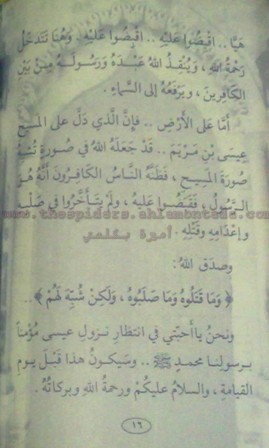 هَيَّا .. اقْبِضُوا عَلَيْهِ .. اقْبِضُوا عَلَيْهِ . وَهُنَا تَتَدَخَّلُ
رَحْمَةُ اللهِ ، وَيُنْقِذُ اللهُ عَبْدَهُ وَرَسُولَهُ مِنْ بَيْنِ
الكَافِرِينَ ، وَيَرْفَعُهُ إِلَى السَّمَاءِ .
أَمَّا عَلَى الأَرْضِ .. فَإِنَّ الَّذِي دَلَّ عَلَى المَسِيحِ
عِيسَى بْنِ مَرْيَمَ .. قَدْ جَعَلَهُ اللهُ فِي صُورَةٍ تُشْبِهُ
صُورَةَ المَسِيحِ ، فَظَنَّهُ النَّاسُ الكَافِرُونَ أَنَّهُ هُوَ
الرَّسُولُ ، فَقَبَضُوا عَلَيهُ ، وَلَمْ يَتَأَخَّرُوا فِي صَلْبِهِ
وإِعْدَامِهِ وقَتْلِهِ .
وصدَقَ اللهُ :
﴿ وَمَا قَتَلُوهُ وَمَا صَلَبُوهُ ، وَلَكِنْ شُبِّهَ لَهُمْ ﴾ ..
ونحنُ يا أَحِبَّتِي في انتظارِ نزولِ عيسى مُؤْمناً
برسولنا محمدٍ ﷺ .. وسَيكونُ هذا قَبْلَ يومِ
القيامةِ ، والسلامُ عليكُمْ ورحمةُ اللهِ وبركاتُهُ .
١٦